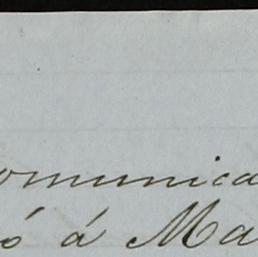 omunica
ó á Ma